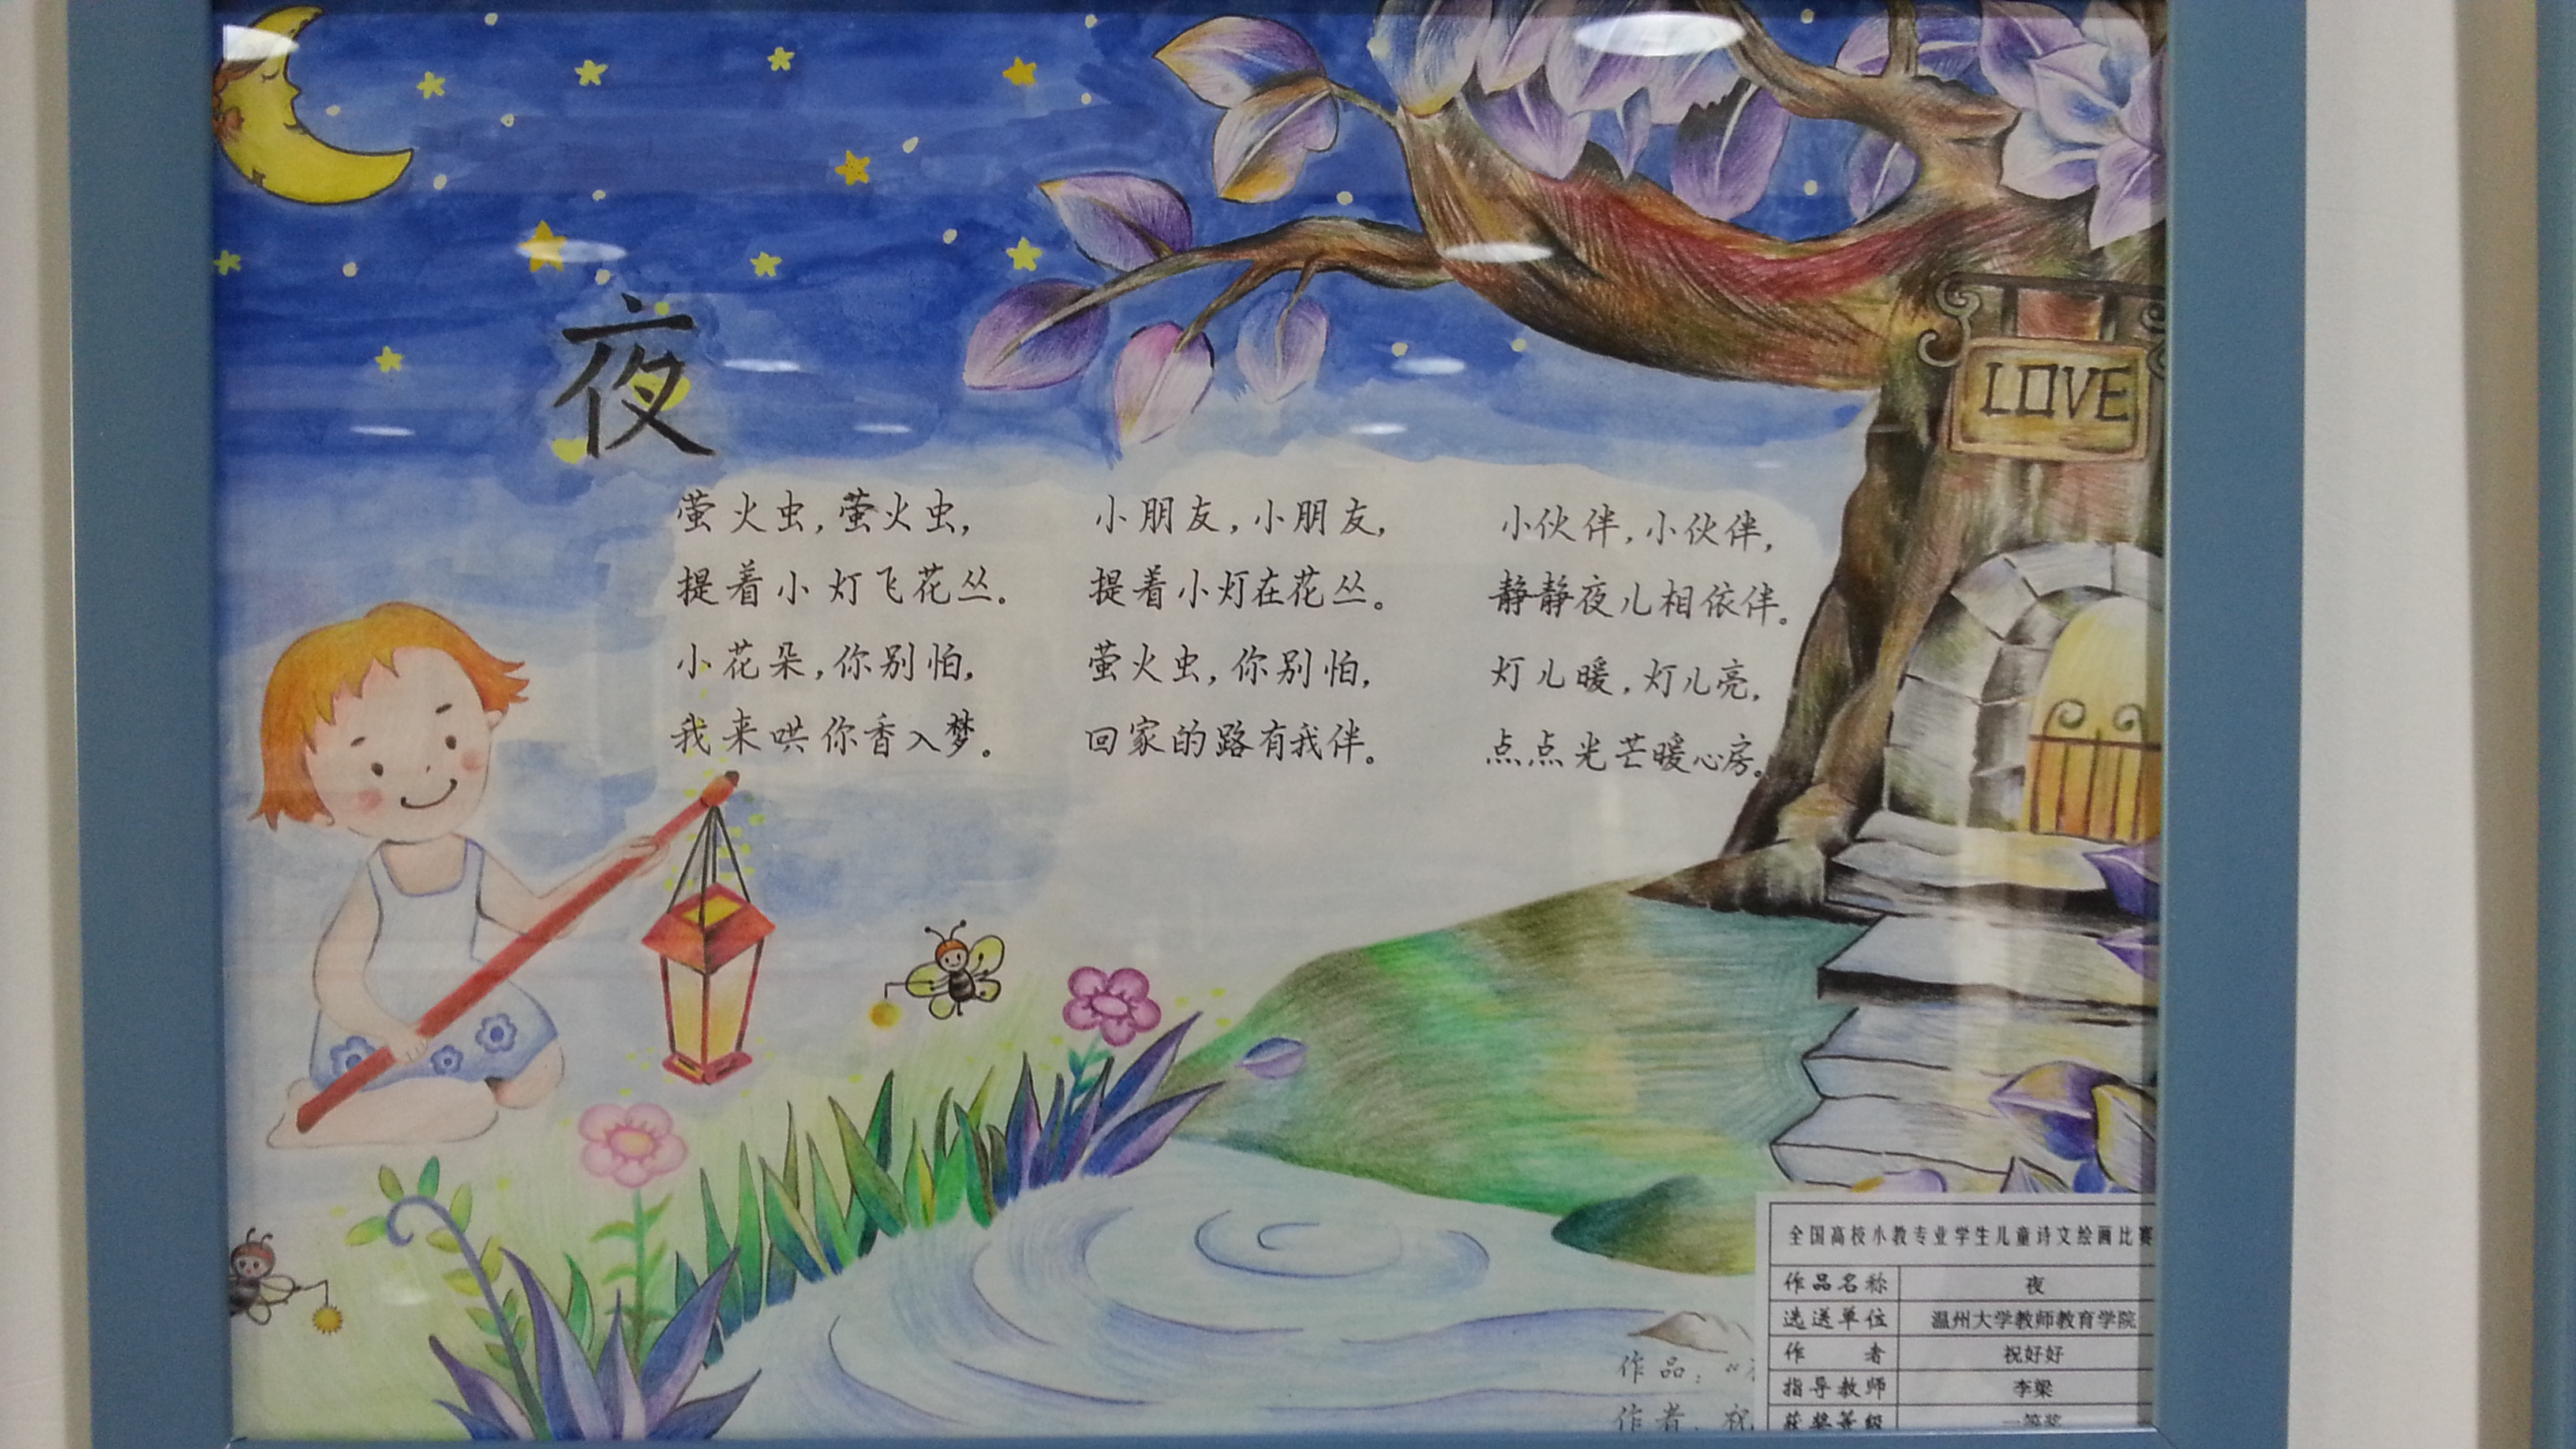 夜
萤火虫,萤火虫,
提着小灯飞花丛。
小花朵,你别怕,
我来哄你香入梦。
小朋友,小朋友,
提着小灯在花丛。
萤火虫,你别怕,
回家的路有我伴。
小伙伴,小伙伴,
静静夜儿相依伴。
灯儿暖,灯儿亮,
点点光芒暖心房。
LOVE
作品:“
作者:祝
全国高校小教专业学生儿童诗文绘画比赛
作品名称 夜
选送单位 温州大学教师教育学院
作者 祝好好
指导教师 李梁
获奖等级 一等奖